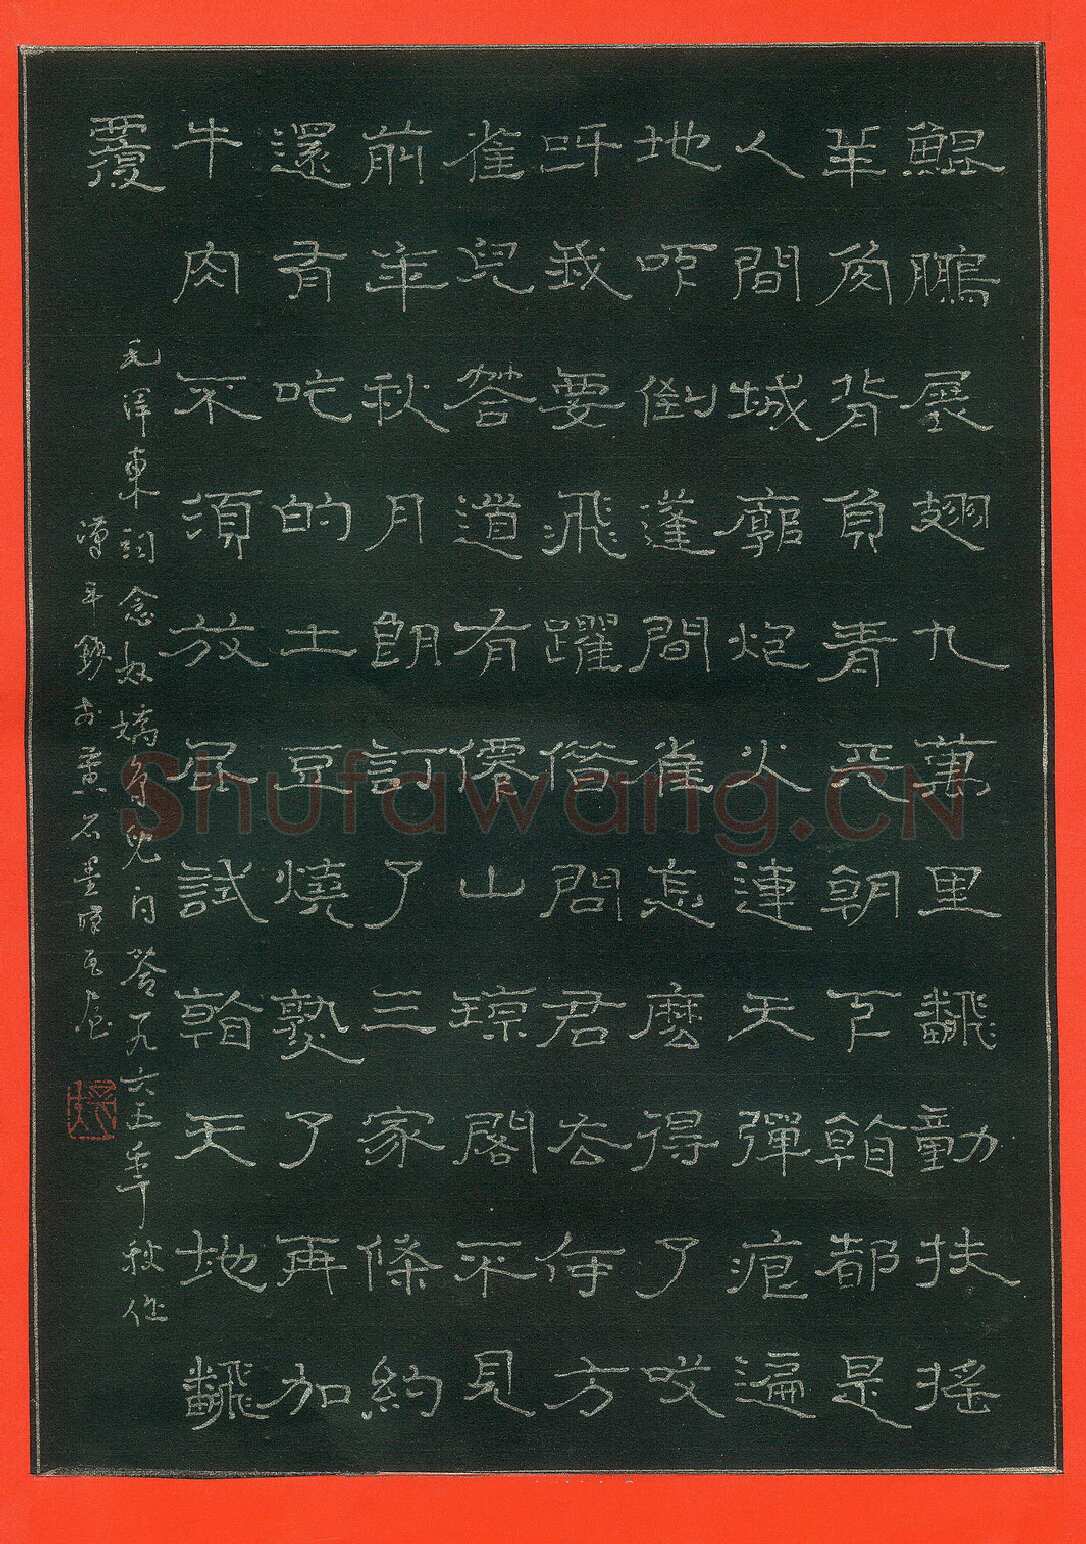 鯤鵬展翅九萬里飜動扶搖
羊角背負青天朝下看都是
人間城廓炮火連天彈痕遍
地吓倒蓬間雀怎麼得了哎
呀我要飛躍借問君去何方
雀兒答道有僊山瓊閣不見
前年秋月朗訂了三家條約
還有吃的土豆燒熟了再加
牛肉不須放屁試看天地飜
覆
毛泽東詞念奴嬌鳥兒问答一九六五年秋作
漢年
Shufawang.CN